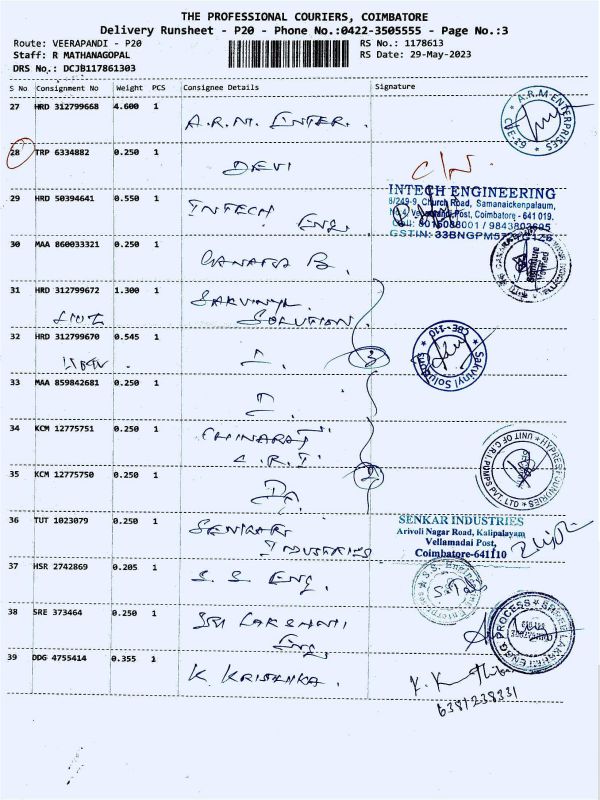 THE PROFESSIONAL COURIERS, COIMBATORE
Delivery Runsheet - P20 - Phone No.:0422-3505555 - Page No.:3
Route: VEERAPANDI - P20 RS No.: 1178613
Staff: R MATHANAGOPAL RS Date: 29-May-2023
DRS No.: DCJB117861303
S No Consignment No Weight PCS Consignee Details Signature
27 HRD 312799668 4.600 1 A.R.M. ENTER.
A.R.M-ENTERPRISES
28 TRP 6334882 0.250 1 DEVI
29 HRD 50394641 0.550 1 INTECH Eng.
INTECH ENGINEERING
8/249-9, Church Road, Samanaickenpalayam,
Post, Coimbatore - 641 019.
30 MAA 860033321 0.250 1
31 HRD 312799672 1.300 1 SAKVINYL
SOLUTION
32 HRD 312799670 0.545 1
Sakvinyl Solutions CBE-110
33 MAA 859842681 0.250 1
34 KCM 12775751 0.250 1 CHINARAJ
C.R.I.
35 KCM 12775750 0.250 1
UNIT OF C.R.I. PUMPS PVT. LTD
36 TUT 1023079 0.250 1 SENKAR
INDUSTRIES
SENKAR INDUSTRIES
Arivoli Nagar Road, Kalipalayam
Vellamadai Post,
Coimbatore-641110
37 HSR 2742869 0.205 1 S. S Eng.
38 SRE 373464 0.250 1 SRI LAKSHMI
Eng
SREE LAKSHMI ENGG PROCESS
39 DDG 4755414 0.355 1 K. KRISHNKA.
6381238331